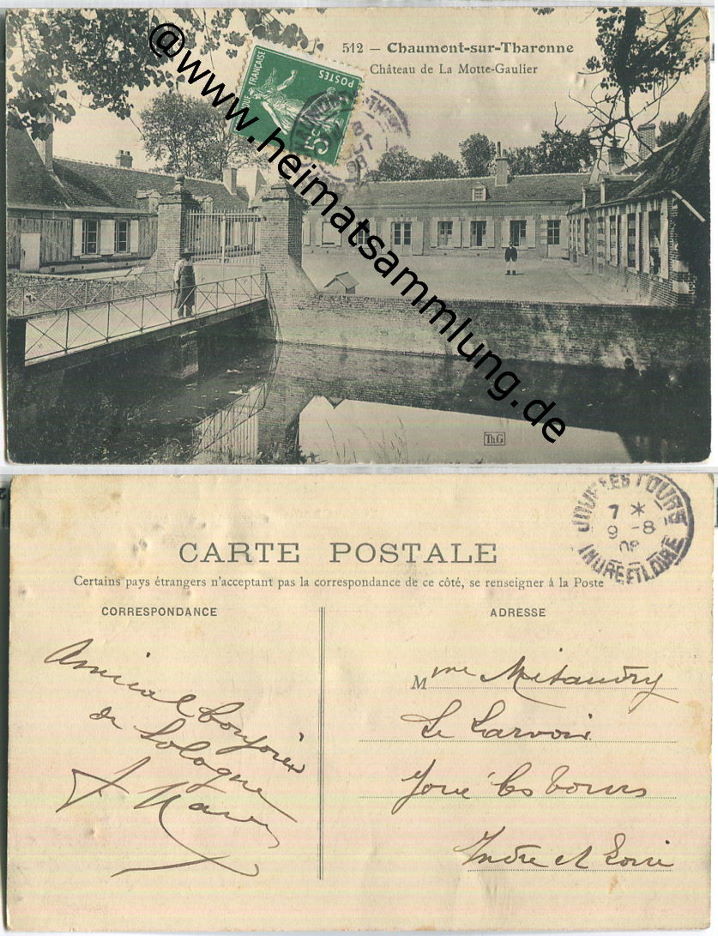 512 – Chaumont-sur-Tharonne
Château de La Motte-Gaulier
POSTES
5c
@www.heimatsammlung.de
ThG
CARTE POSTALE
Certains pays étrangers n'acceptant pas la correspondance de ce côté, se renseigner à la Poste
CORRESPONDANCE
ADRESSE
JOUÉ-LES-TOURS
7 *
9 -8
08
INDRE ET LOIRE
Amical bonjour
de Sologne
Mme Mitaudry
Le
Joué les tours
Indre et Loire